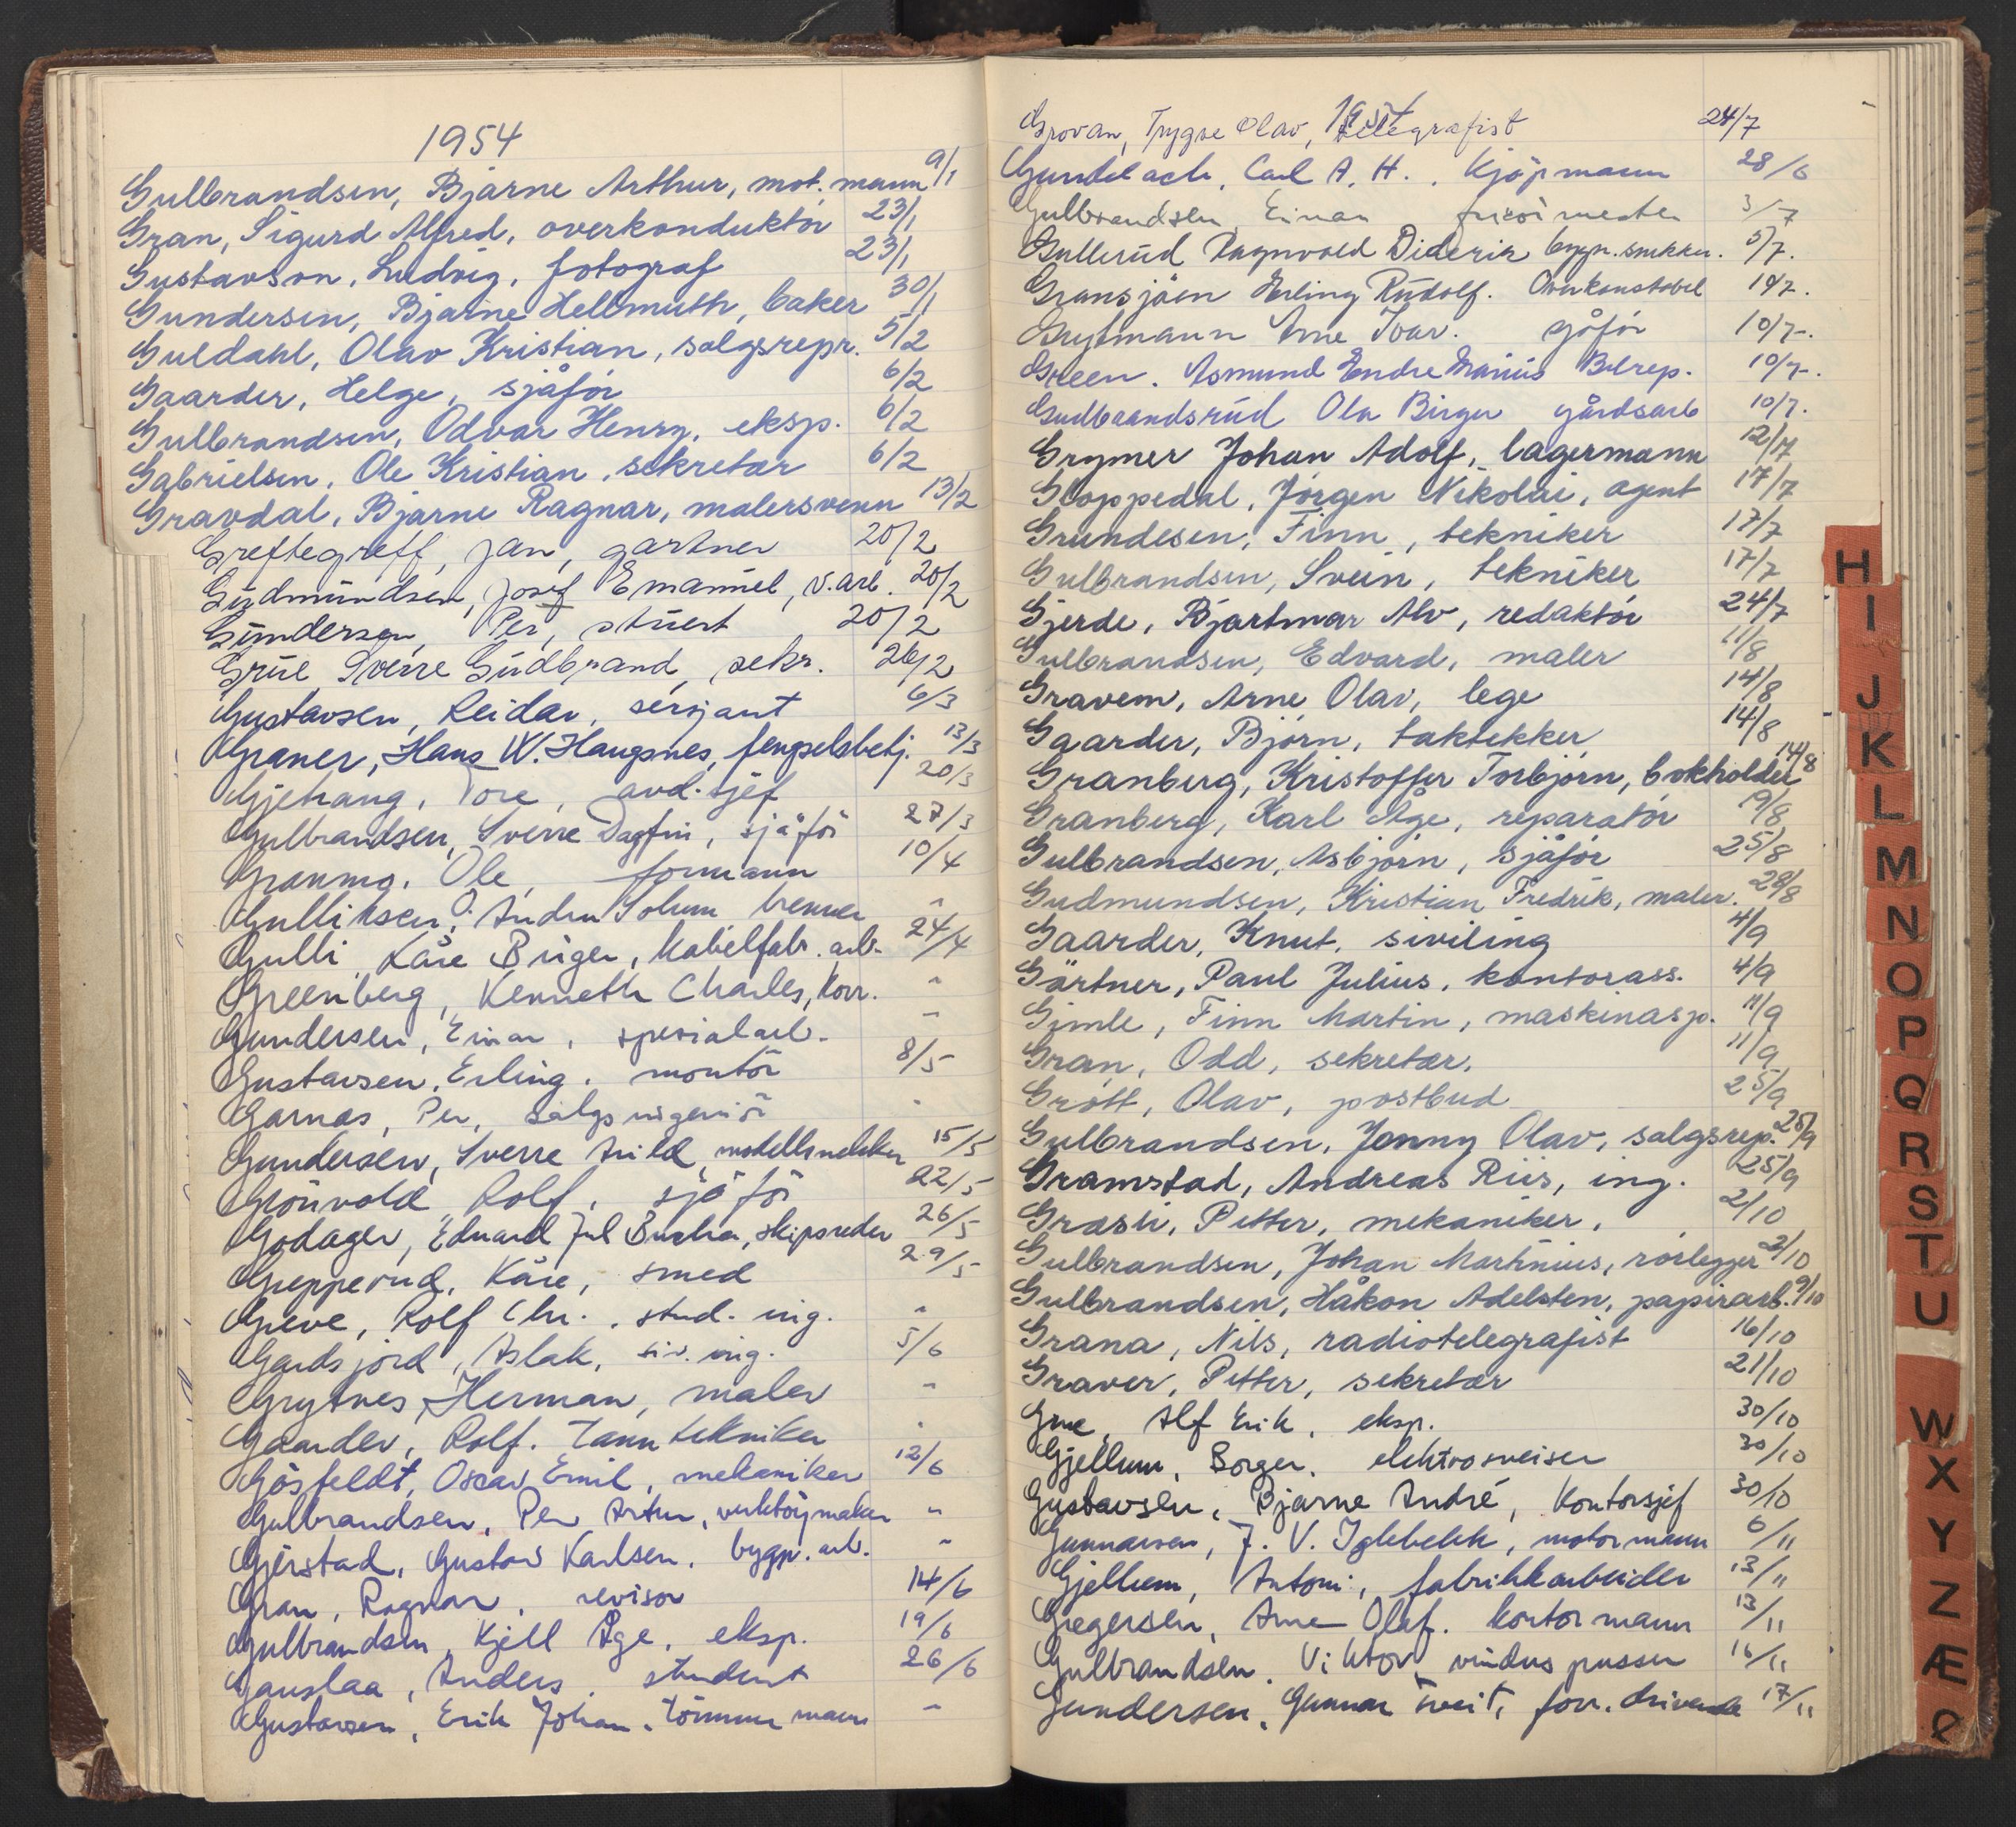 1954
Gulbrandsen, Bjarne Arthur, mot.mann 9/1
Gran, Sigurd Alfred, overkonduktör 23/1
Gustavson, Ludvig, fotograf 23/1
Gundersen, Bjarne Hellmuth, baker 30/1
Guldahl, Olav Kristian, salgsrepr. 5/2
Gaarder, Helge, sjåfør 6/2
Gulbrandsen, Odvar Henry, eksp. 6/2
Gabrielsen, Ole Kristian, sekretær 6/2
Gravdal, Bjarne Ragnar, malersvenn 13/2
Greftegreff, Jan, gartner 20/2
Gudmundsen, Josef Emanuel, v.arb. 20/2
Gundersen, Per, stuert 20/2
Grue Sverre Gudbrand, sekr. 26/2
Gustavsen, Reidar, sersjant 6/3
Graner, Hans W. Haugsnes, fengselsbetj. 13/3
Gjehaug, Tore, avd.sjef 20/3
Gulbrandsen, Sverre Dagfin, sjåför 27/3
Granmo, Ole, formann 10/4
Gulliksen, Andr. Solum brenner "
Gulli Kåre Birger, kabelfabr. arb. 24/4
Greenberg, Kenneth Charles, korr. "
Gundersen, Einar, spesialarb. "
Gustavsen, Erling, montör 8/5
Garnås, Per, salgsingeniör "
Gundersen, Sverre Arild, modellsnekker 15/5
Grönvold, Rolf, sjåför 22/5
Godager, Edvard Jul , skipsreder 26/5
Greppevud, Kåre, smed 29/5
Greve, Rolf Chr., stud. ing. "
Gardsjord, Aslak, siv. ing. 5/6
Grytnes, Herman, maler "
Gaarder, Rolf. Tanntekniker "
Gösfeldt, Oscar Emil, mekaniker 12/6
Gulbrandsen, Per Artur, verktöymaker "
Gjerstad, Gustav Karlsen, bygn. arb. "
Gran, Ragnar, revisor 14/6
Gulbrandsen, Kjell Åge, eksp. 19/6
Gauslaa, Anders, student 26/6
Gustavsen, Erik Johan, tömmermann "
1954
Grovan, Trygve Olav, telegrafist 24/7
Gundelach, Carl A. H., Kjöpmann 28/6
Gulbrandsen, Einar frisörmester 3/7
Gullerud Ragnvald Diderik bygn.snekker. 5/7.
Gransjöen Erling Rudolf. Overkonstabel 10/7.
Grytmann Arne Ivar. sjåför 10/7.
Green. Asmund Endre Marius Bilrep. 10/7.
Gudbrandsrud Ola Birger gårdsarb 10/7.
Grymer Johan Adolf, lagermann 12/7
Gloppedal, Jørgen Nikolai, agent 17/7
Grundesen, Finn, tekniker 17/7
Gulbrandsen, Svein, tekniker 17/7
Gjerde, Bjartmar Alv, redaktör 24/7
Gulbrandsen, Edvard, maler 11/8
Gravem, Arne Olav, lege 14/8
Gaarder, Bjørn, taktekker 14/8
Granberg, Kristoffer Torbjørn, bokholder 14/8
Granberg, Karl Åge, reparatör 19/8
Gulbrandsen, Asbjørn, sjåfør 25/8
Gudmundsen, Kristian Fredrik, maler. 28/8
Gaarder, Knut, siviling 4/9
Gärtner, Paul Julius, kontorass. 4/9
Gimle, Finn Martin, maskinasp. 11/9
Gran, Odd, sekretær. 11/9
Grøtt, Olav, postbud 25/9
Gulbrandsen, Jonny Olav, salgsrep. 25/9
Gramstad, Andreas Riis, ing. 25/9
Grasli, Petter, mekaniker. 2/10
Gulbrandsen, Johan Martinius, rørlegger 2/10
Gulbrandsen, Håkon Adelsten, papirarb. 9/10
Grana, Nils, radiotelegrafist 16/10
Graver, Petter, sekretær 21/10
Grue, Alf Erik, eksp. 30/10
Gjellum, Borger, elektrosveiser 30/10
Gustavsen, Bjarne André, Kontorsjef 30/10
Gunnarsen, J. V. Iglebekk, motormann 6/11
Gjellum, Antoni, fabrikkarbeider 13/11
Gregersen, Arne Olaf. kontormann 13/11
Gulbrandsen, Viktor vinduspusser 16/11
Gundersen, Gunnar Tveit, forr. drivende 17/11
H
I
J
K
L
M
N
O
P
Q
R
S
T
U
W
X
Y
Z
Æ